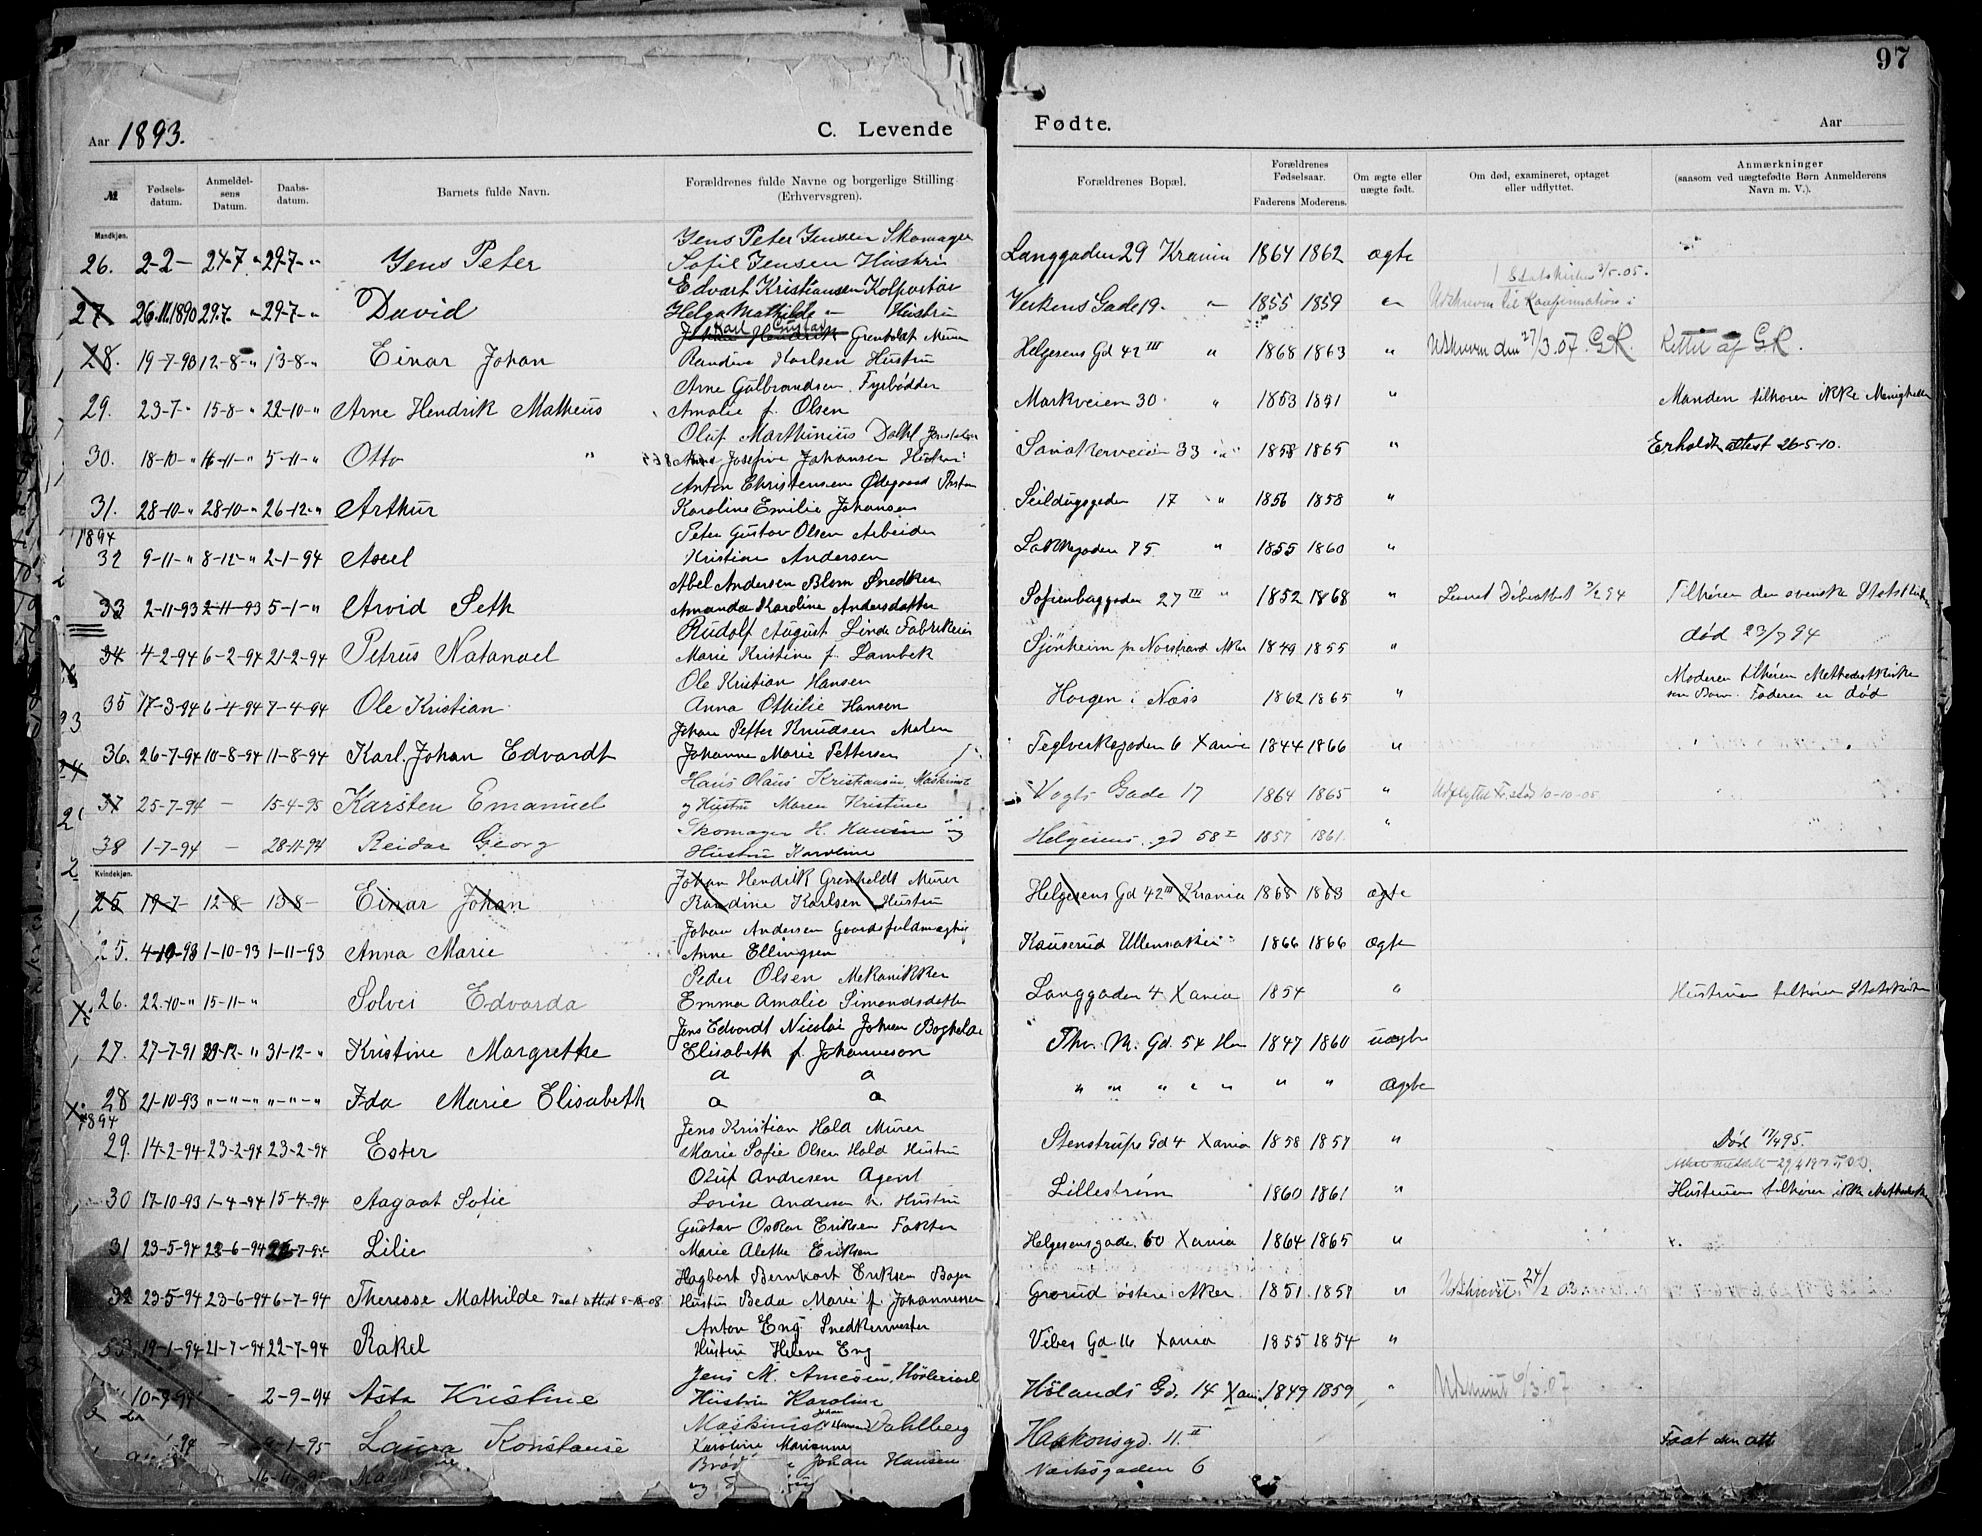 97
Aar 1893.
C. Levende
Fødte.
Aar
№
Fødsels-datum.
Anmeldel-sens Datum.
Daabs-datum.
Barnets fulde Navn.
Forældrenes fulde Navne og borgerlige Stilling (Erhvervsgren).
Forældrenes Bopæl.
Forældrenes Fødselsaar.
Faderens
Moderens.
Om ægte eller uægte født.
Om død, examineret, optaget eller udflyttet.
Anmærkninger (saasom ved uægtefødte Børn Anmelderens Navn m. V.).
Mandkjøn.
Jens Peter Jensen Skomager
26. 2-2- 24-7 " 29-7- " Jens Peter Sofie Jensen Hustru Langgaden 29 Krania 1864 1862 ægte
Edvart Kristiansen Kolportør
27 26.11.1890 29-7- " 29-7- " David Helga Mathilde " Hustru Verkens Gade 19. " 1855 1859 " Udskreven til Konfirmation i Statskirken 3/5-05.
Karl Gustav Grenholdt Murer
28. 19-7-90 12-8- " 13-8- " Einar Johan Randine Karlsen Hustru Helgesens Gd 42 III " 1868 1863 " Udskreven den 27/3.07. GR. Rettet af GR.
Arne Gulbrandsen Fyrbødder
29. 23-7- " 15-8- " 22-10- " Arne Hendrik Matheus Amalie f. Olsen Markveien 30. " 1853 1851 " Manden tilhører ikke Menigheden
Oluf Marthinius Dahl
30. 18-10- " 16-11- " 5-11- " Otto Josefine Johansen Hustru Sanakerveien 33 " 1858 1865 " Erholdt attest 26-5-10.
Anton Christensen Ødegaard
31. 28-10- " 28-10- " 26-12- " Arthur Karoline Emilie Johansen Seildugsgaden 17 " 1856 1858 "
1894
Peter Gustav Olsen Arbeider
32 9-11- " 8-12- " 2-1-94 Axel Kristine Andersen Lakkegaden 75 " 1855 1860 "
Abel Andersen Blom Snedker
33 2-11-93 2-11-93 5-1- " Arvid Seth Amanda Karoline Andersdatter Sofienberggaden 27 III " 1852 1868 " Tilhører den svenske Statskirke
Rudolf August Linde Fabrikeier
34 4-2-94 6-2-94 21-2-94 Petrus Natanael Marie Kristine f. Lambek Sjönheim pr Norstrand Aker 1849 1855 " død 23/7 94
Ole Kristian Hansen
35 17-3-94 6-4-94 7-4-94 Ole Kristian Anna Othilie Hansen Horgen i Næss 1862 1865 " Moderen tilhører Methodistkirken som Barn. Faderen er død
Johan Petter Knudsen Maler
36. 26-7-94 10-8-94 11-8-94 Karl Johan Edvardt Johanne Marie Pettersen Teglverksgaden 6 Xania 1844 1866 "
Hans Olaus Kristiansen, Maskinist
37 25-7-94 - 15-4-95 Karsten Emanuel og Hustru Maren Kristine Vogts Gade 17 1864 1865 " Udflyttet 10-10-05
Skomager H. Hansen og
38 1-7-94 - 28-11-94 Reidar Georg Hustru Karoline Helgesens gd 58 I 1857 1861. "
Kvindekjøn.
Johan Hendrik Grenholdt Murer
25 19-7- 12-8- 13-8- Einar Johan Randine Karlsen Hustru Helgesens Gd 42 III Krania 1868 1863 ægte
Johan Andersen Gaardsfuldmægtig
25. 4-10-93 1-10-93 1-11-93 Anna Marie Anne Ellingsen Kauserud Ullensaker 1866 1866 ægte
Peder Olsen Mekanikker
26. 22-10- " 15-11- " Solvei Edvarda Emma Amalie Simondsdatter Langgaden 4 Xania 1854 " Hustruen tilhører Statskirken
Jens Edvardt Nicolai Johnsen
27. 27-7-91 23-12- " 31-12- " Kristine Margrethe Elisabeth f. Johannesson Thv. M. Gd. 54 1847 1860 uægte
28 21-10-93 "-"-" "-"-" Ida Marie Elisabeth " " " " " " " Ægte
1894
Jens Kristian Hold Murer
29. 14-2-94 23-2-94 23-2-94 Ester Marie Sofie Olsen Hold Hustru Stenstrups Gd 4 Xania 1858 1857 " Død 17/4 95.
Oluf Andresen Agent
30 17-10-93 1-4-94 15-4-94 Aagaat Sofie Lovise Andresen Hustru Lillestrøm 1860 1861 " Hustruen tilhører ikke
Gustav Oskar Eriksen Faktor
31 23-5-94 Lilie Marie Alethe Eriksen Helgesensgade 60 Xania 1864 1865 "
Hagbart Bernhart Eriksen Bager
32 23-5-94 23-6-94 6-7-94 Theresse Mathilde Faat attest 8-10-08 Hustru Beda Marie f. Johannessen Grorud østere Aker 1851. 1857 " Udskrevet 24/2 03
Anton Eng Snedkermester
19-1-94 21-7-94 22-7-94 Rakel Hustru Helene Eng Vibes Gd. 16 Xania 1855 1854 "
Jens M. Arnesen,
10-9-94 - 2-9-94 Asta Kristine Hustru Karoline Hølands Gd. 14 Xania 1849 1859 " Udskrevet 6/3.07
Maskinist Johan Dahlberg
Laura Konstanse Karoline Marianne Haakonsgd. 11. II Faat den att
Johan Hansen
Værksgaden 6